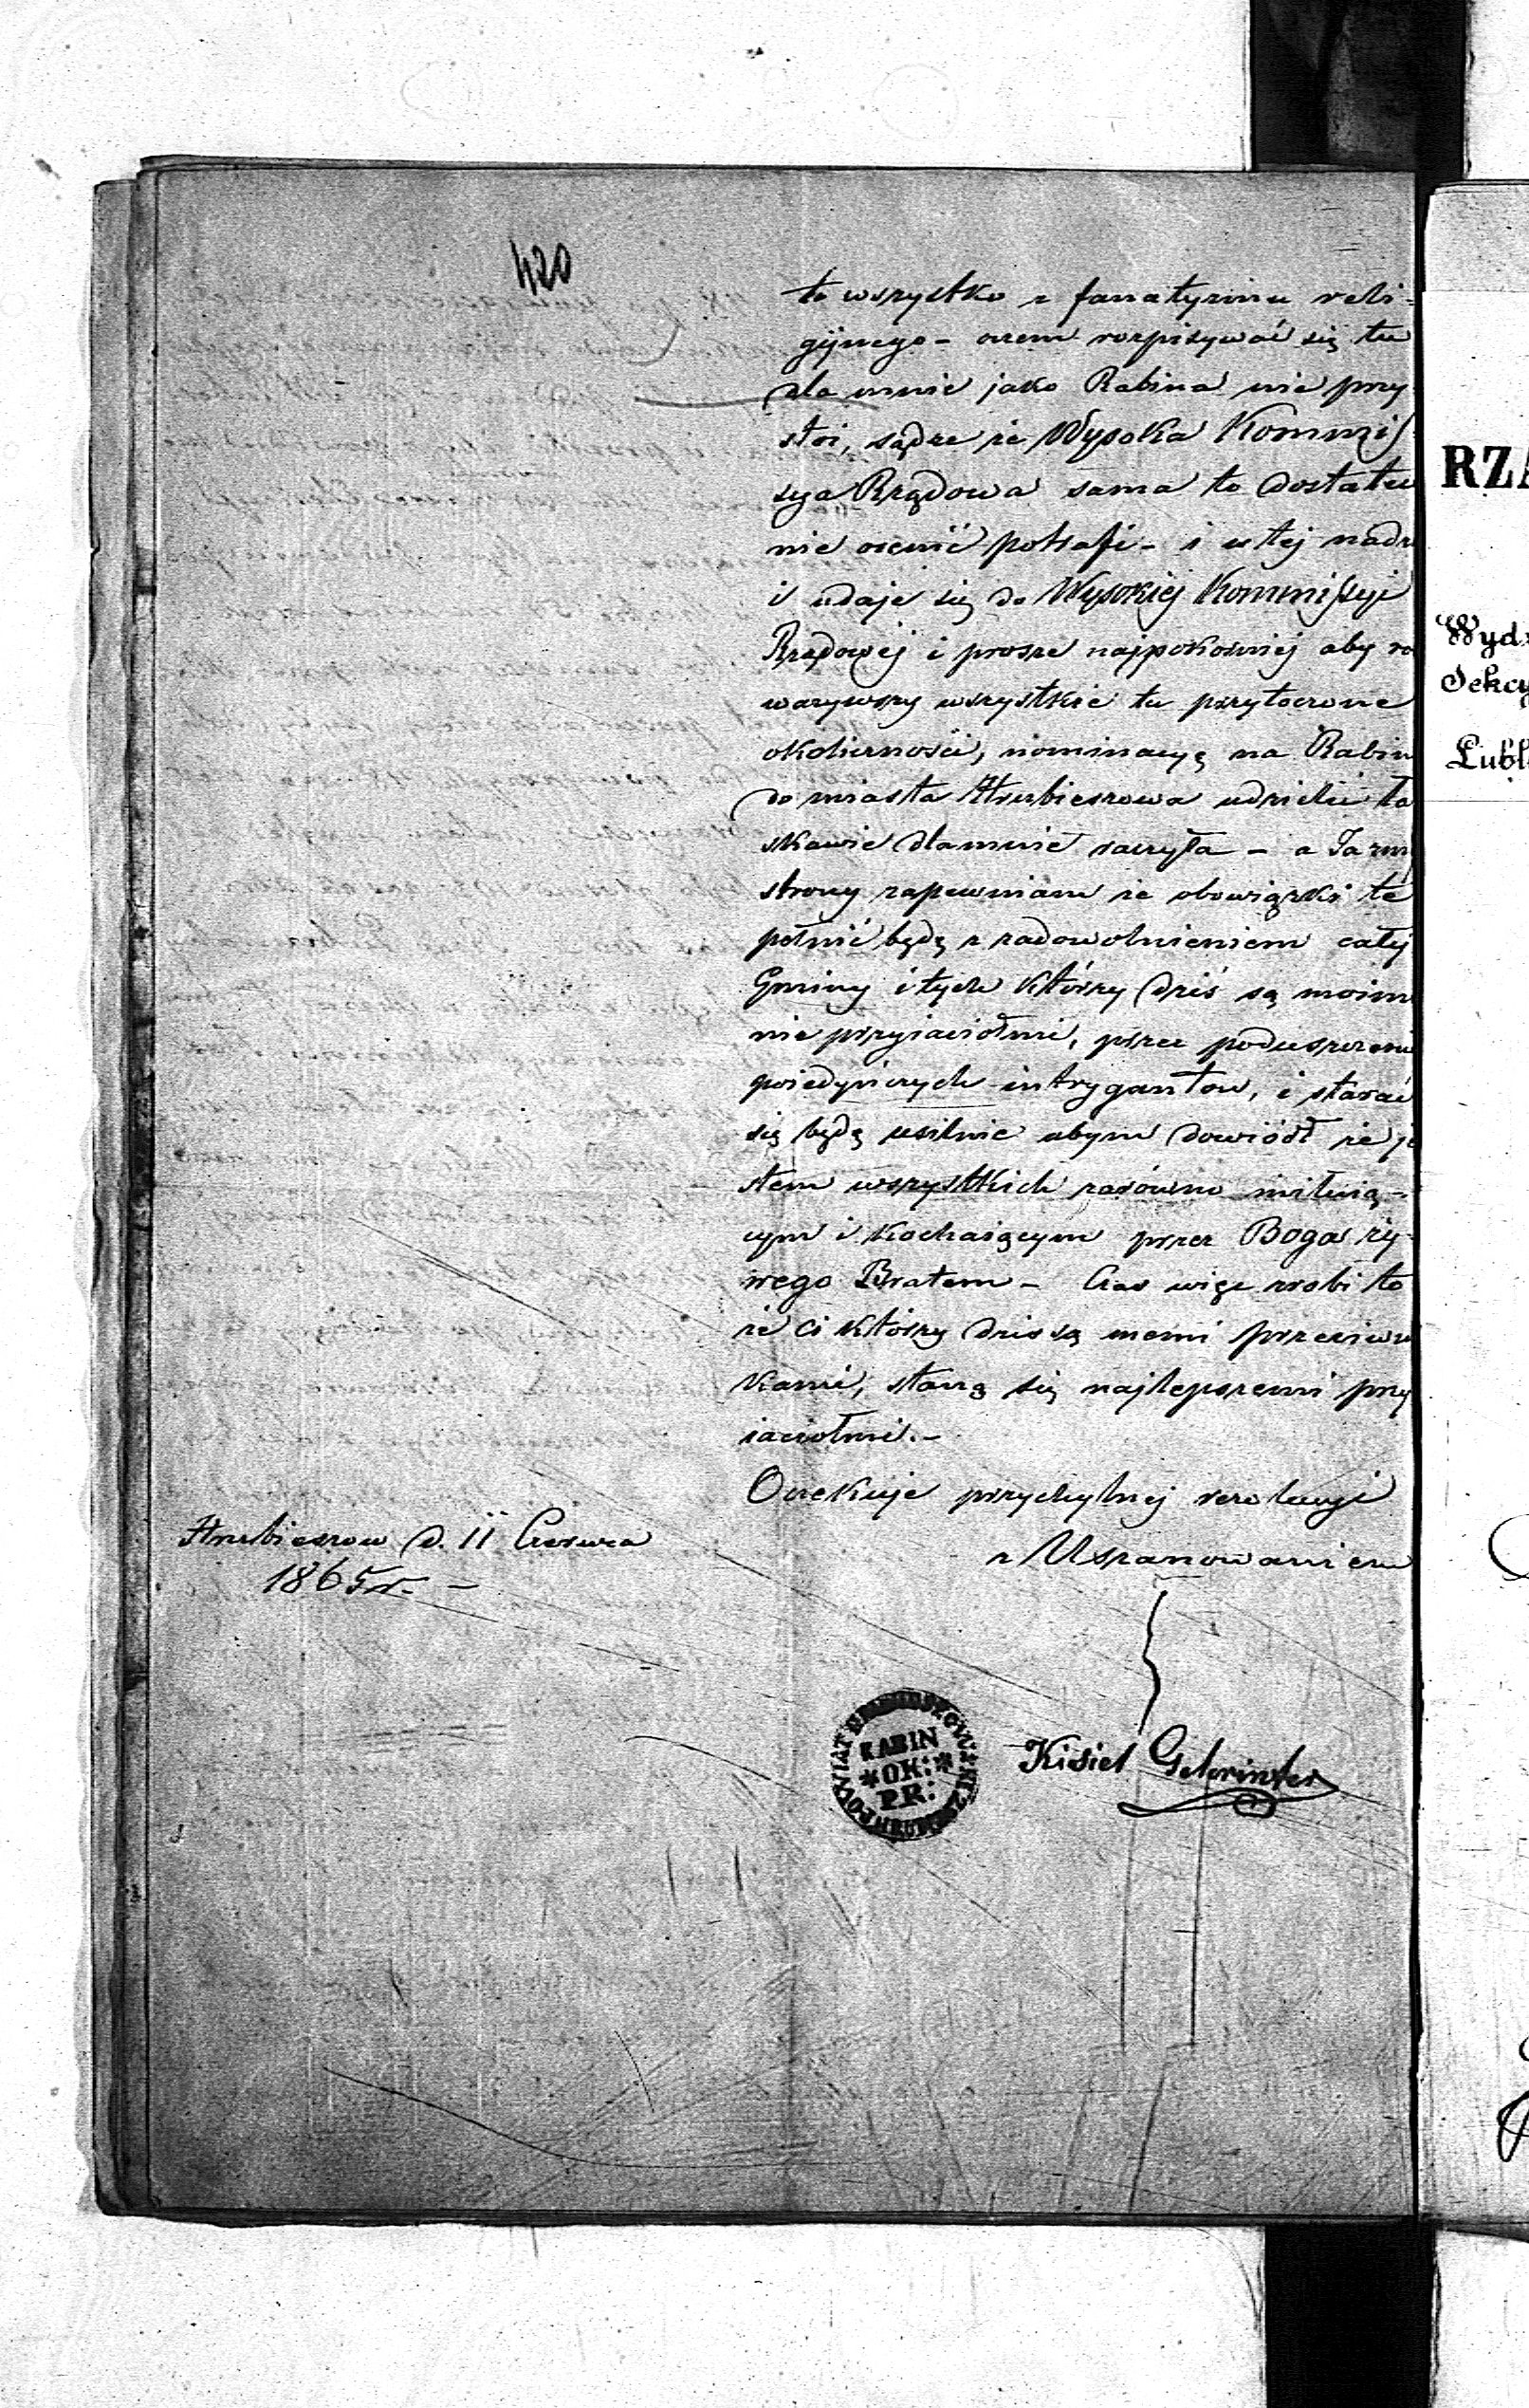 420
to wszystko z fanatyzmu reli-
gijnego - ozem rozpisywać się tu
dla mnie jako Rabina nie przy
stoi, sądze że Wysoka Kommis
sya Rządowa sama to dostatecz
nie ocenić potrafi - i w tej nadz
i udaje się do Wysokiej Kommissyi
Rządowej i prosze najpokorniej aby ro
ważywszy wszystkie tu przytoczone
okoliczności, nominacyę na Rabin
do miasta Hrubieszowa udzielić ła
skawie dlamnie raczyła - a Ja zm
strony zapewniam że obowiązki te
pełnić będę z zadowolnieniem całej
Gminy i tych którzy dziś są moim
nie przyiaciołmi, przez poduszczeni
poiedyńczych intrygantow, i starać
się będę usilnie abym dowiódł że je
stem wszystkich zarówno miłuią-
cym i Kochaiącym przez Boga ży-
wego Bratem - Czas więc zrobi to
że ci którzy dziś są memi przeciwn
kami, staną się najlepszemi przy
iaciołmi. -
Oczekuje przychylnej rezolucyi
z Uszanowaniem
Hrubieszow d. 11 Czerwca
1865 r. -
Kisiel Gelernter
POWIAT HRUBIESZOWSKI
RABIN
*OK:*
P.R:
RZĄ
Wydz
Sekcy
Lubl